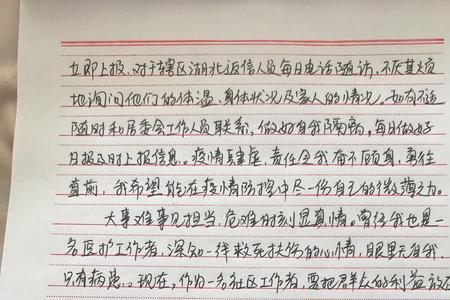 立即上报。对于辖区湖北返信人员每日电话随访,不厌其烦
地询问他们的体温、身体状况及家人的情况。如有不适
随时和居委会工作人员联系,做好自我隔离。每日做好
日报及时上报信息。疫情肆虐,责任令我奋不顾身,勇往
直前,我希望能在疫情防控中尽一份自己的微薄之力。
大事难事见担当,危难时刻显真情。曾经我也是一
名医护工作者,深知一线救死扶伤的心情,眼里无自我,
只有病患。现在,作为一名社区工作者,要把群众的利益放在